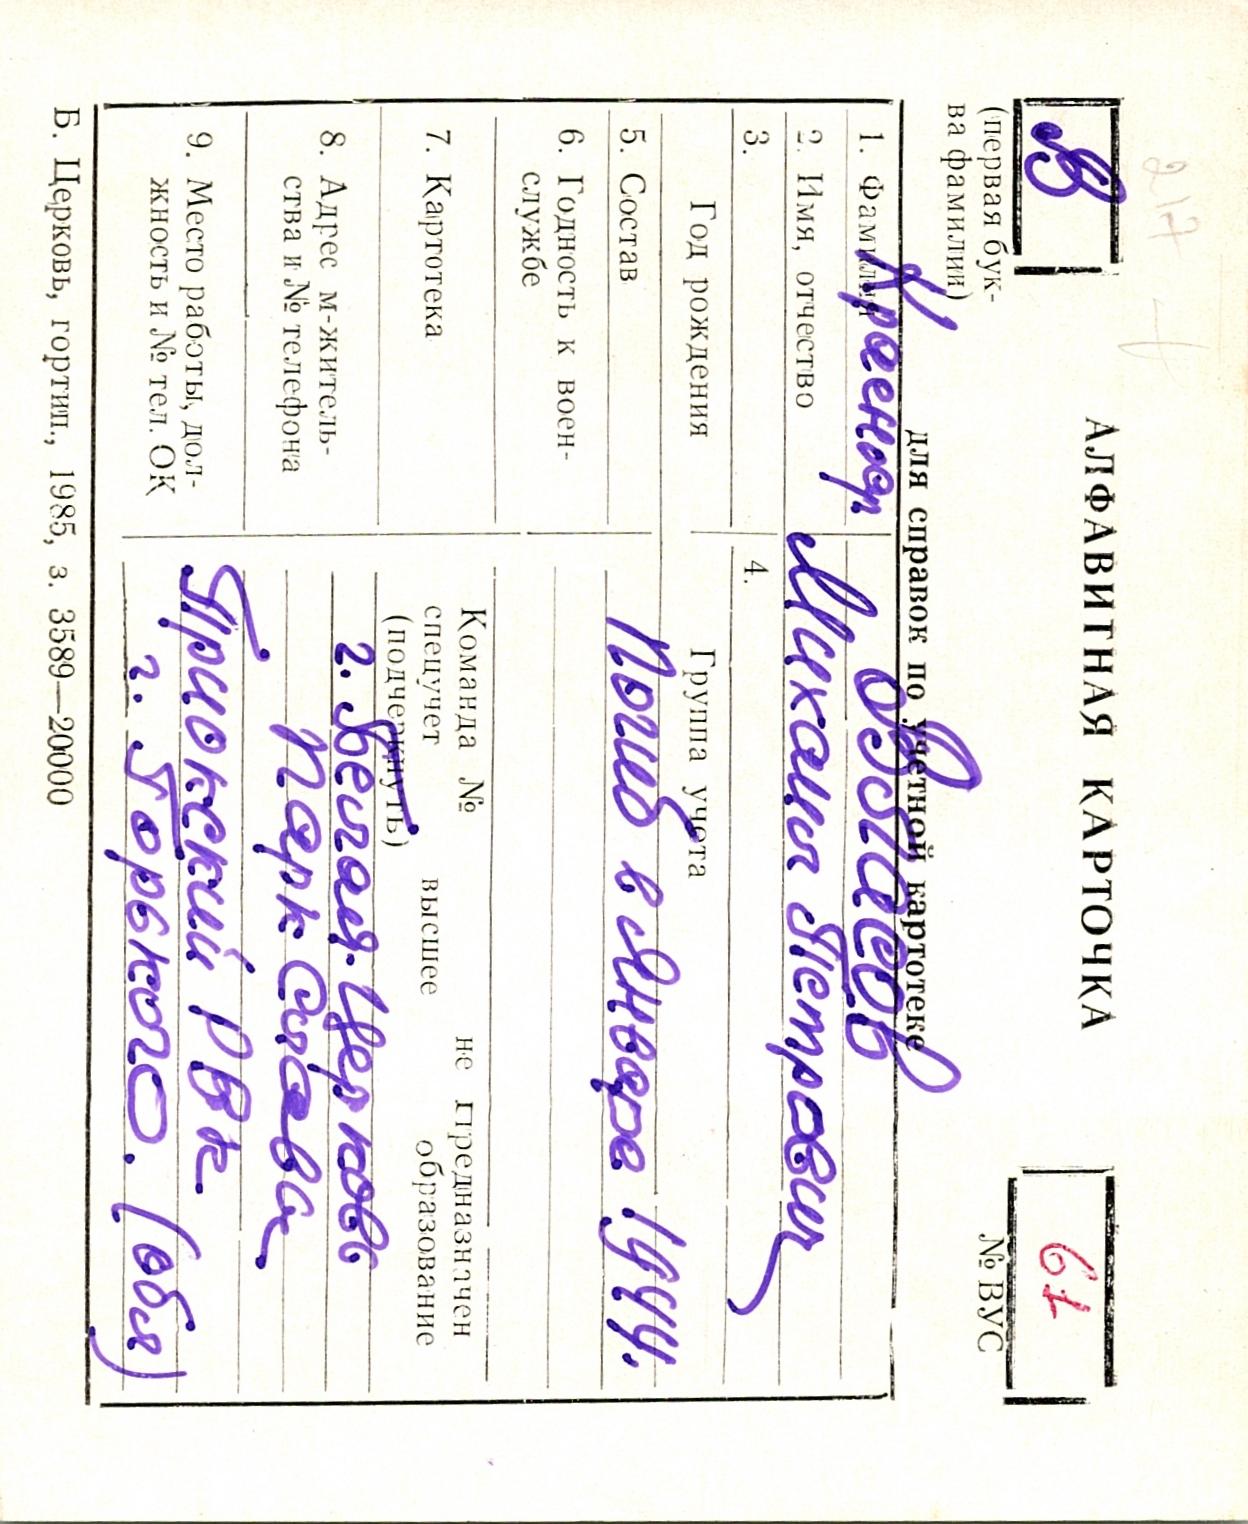 217
В
(первая бук-
ва фамилии)
АЛФАВИТНАЯ КАРТОЧКА
для справок по учетной картотеке
61
№ ВУС
1. Фамилия Красноар.
2. Имя, отчество Михаил Петрович
3. 4.
Год рождения Группа учета
5. Состав Погиб в Январе 1944.
6. Годность к воен-
службе
7. Картотека
Команда № не предназначен
спецучет высшее образование
(подчеркнуть)
8. Адрес м-житель-
ства и № телефона
г. Белая-Церковь
Парк Славы
9. Место работы, дол-
жность и № тел. ОК
Приокский РВК
г. Горького. (обл)
Б. Церковь, гортип., 1985, з. 3589—20000